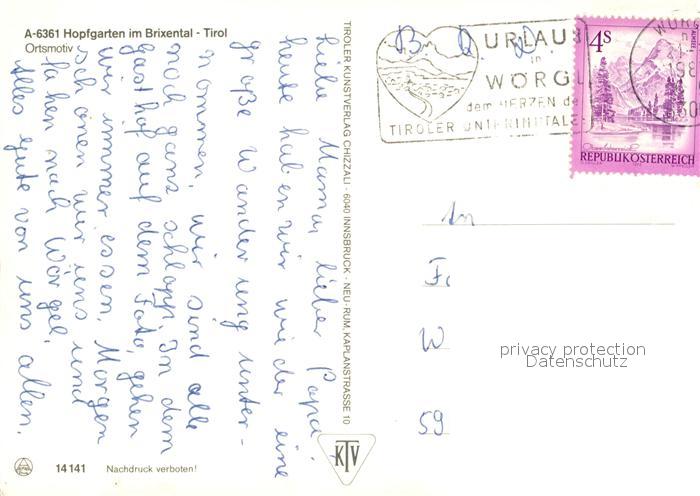 A-6361 Hopfgarten im Brixental - Tirol
Ortsmotiv
Liebe Mama, lieber Papa!
heute haben wir wieder eine
große Wanderung unter-
nommen, wir sind alle
noch ganz schlapp. In dem
Gasthof auf dem Foto, gehen
wir immer essen. Morgen
schauen wir uns und
fahren nach Wörgel.
Alles gute von uns allen.
TIROLER KUNSTVERLAG CHIZZALI · 6040 INNSBRUCK · NEU-RUM, KAPLANSTRASSE 10
KTV
14141 Nachdruck verboten!
URLAUB
in
WÖRGL
dem HERZEN de
TIROLER UNTERINNTALE
4s
ALMSEE
REPUBLIK ÖSTERREICH
An
Fr
W
59
privacy protection
Datenschutz